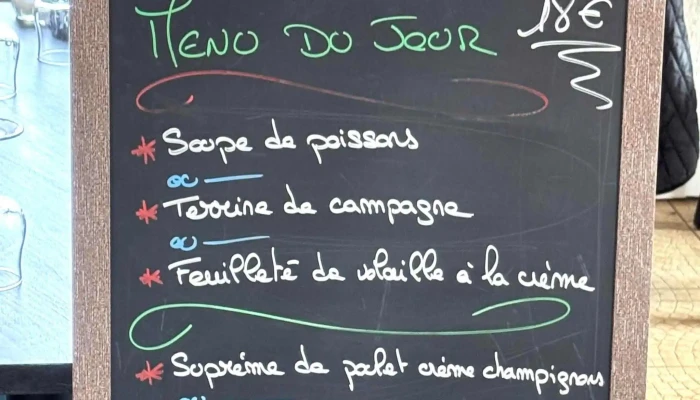 MENU DU JOUR 18€
* Soupe de poissons
ou
* Terrine de campagne
ou
* Feuilleté de volaille à la crème
* Suprême de poulet crème champignons
ou